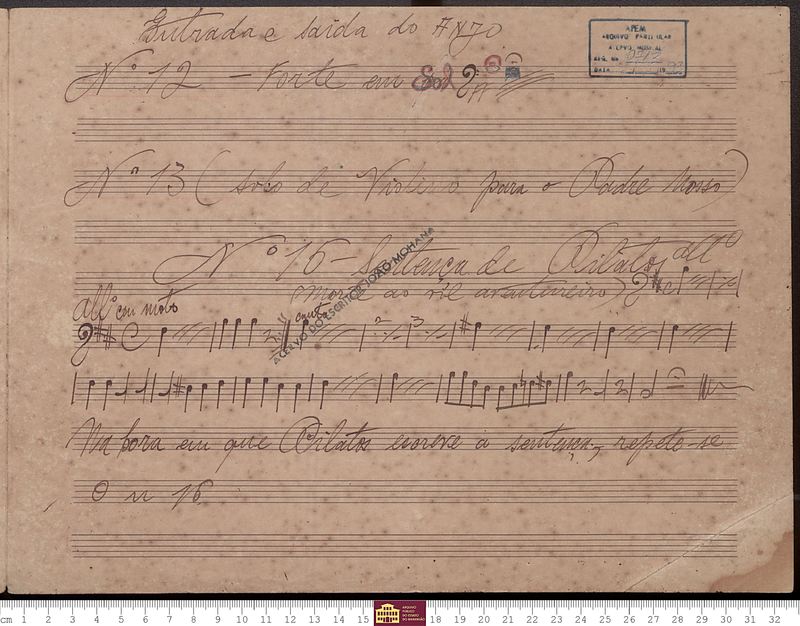 Entrada e saída do Anjo
APEM
ARQUIVO PARTICULAR
ACERVO MUSICAL
REG. No.
DATA
Nº 12 - Forte em Sol
Nº 13 (Solo de Violino para o Padre Nosso)
Nº 15 - Sentença de Pilatos, allº
(Morte ao vil aventureiro)
allº con moto
canta
ACERVO DO ESCRITOR JOÃO MOHANA
Na hora em que Pilatos escreve a sentença, repete-se
O n 16
cm 1 2 3 4 5 6 7 8 9 10 11 12 13 14 15 18 19 20 21 22 23 24 25 26 27 28 29 30 31 32
ARQUIVO
PÚBLICO
DO ESTADO
DO MARANHÃO